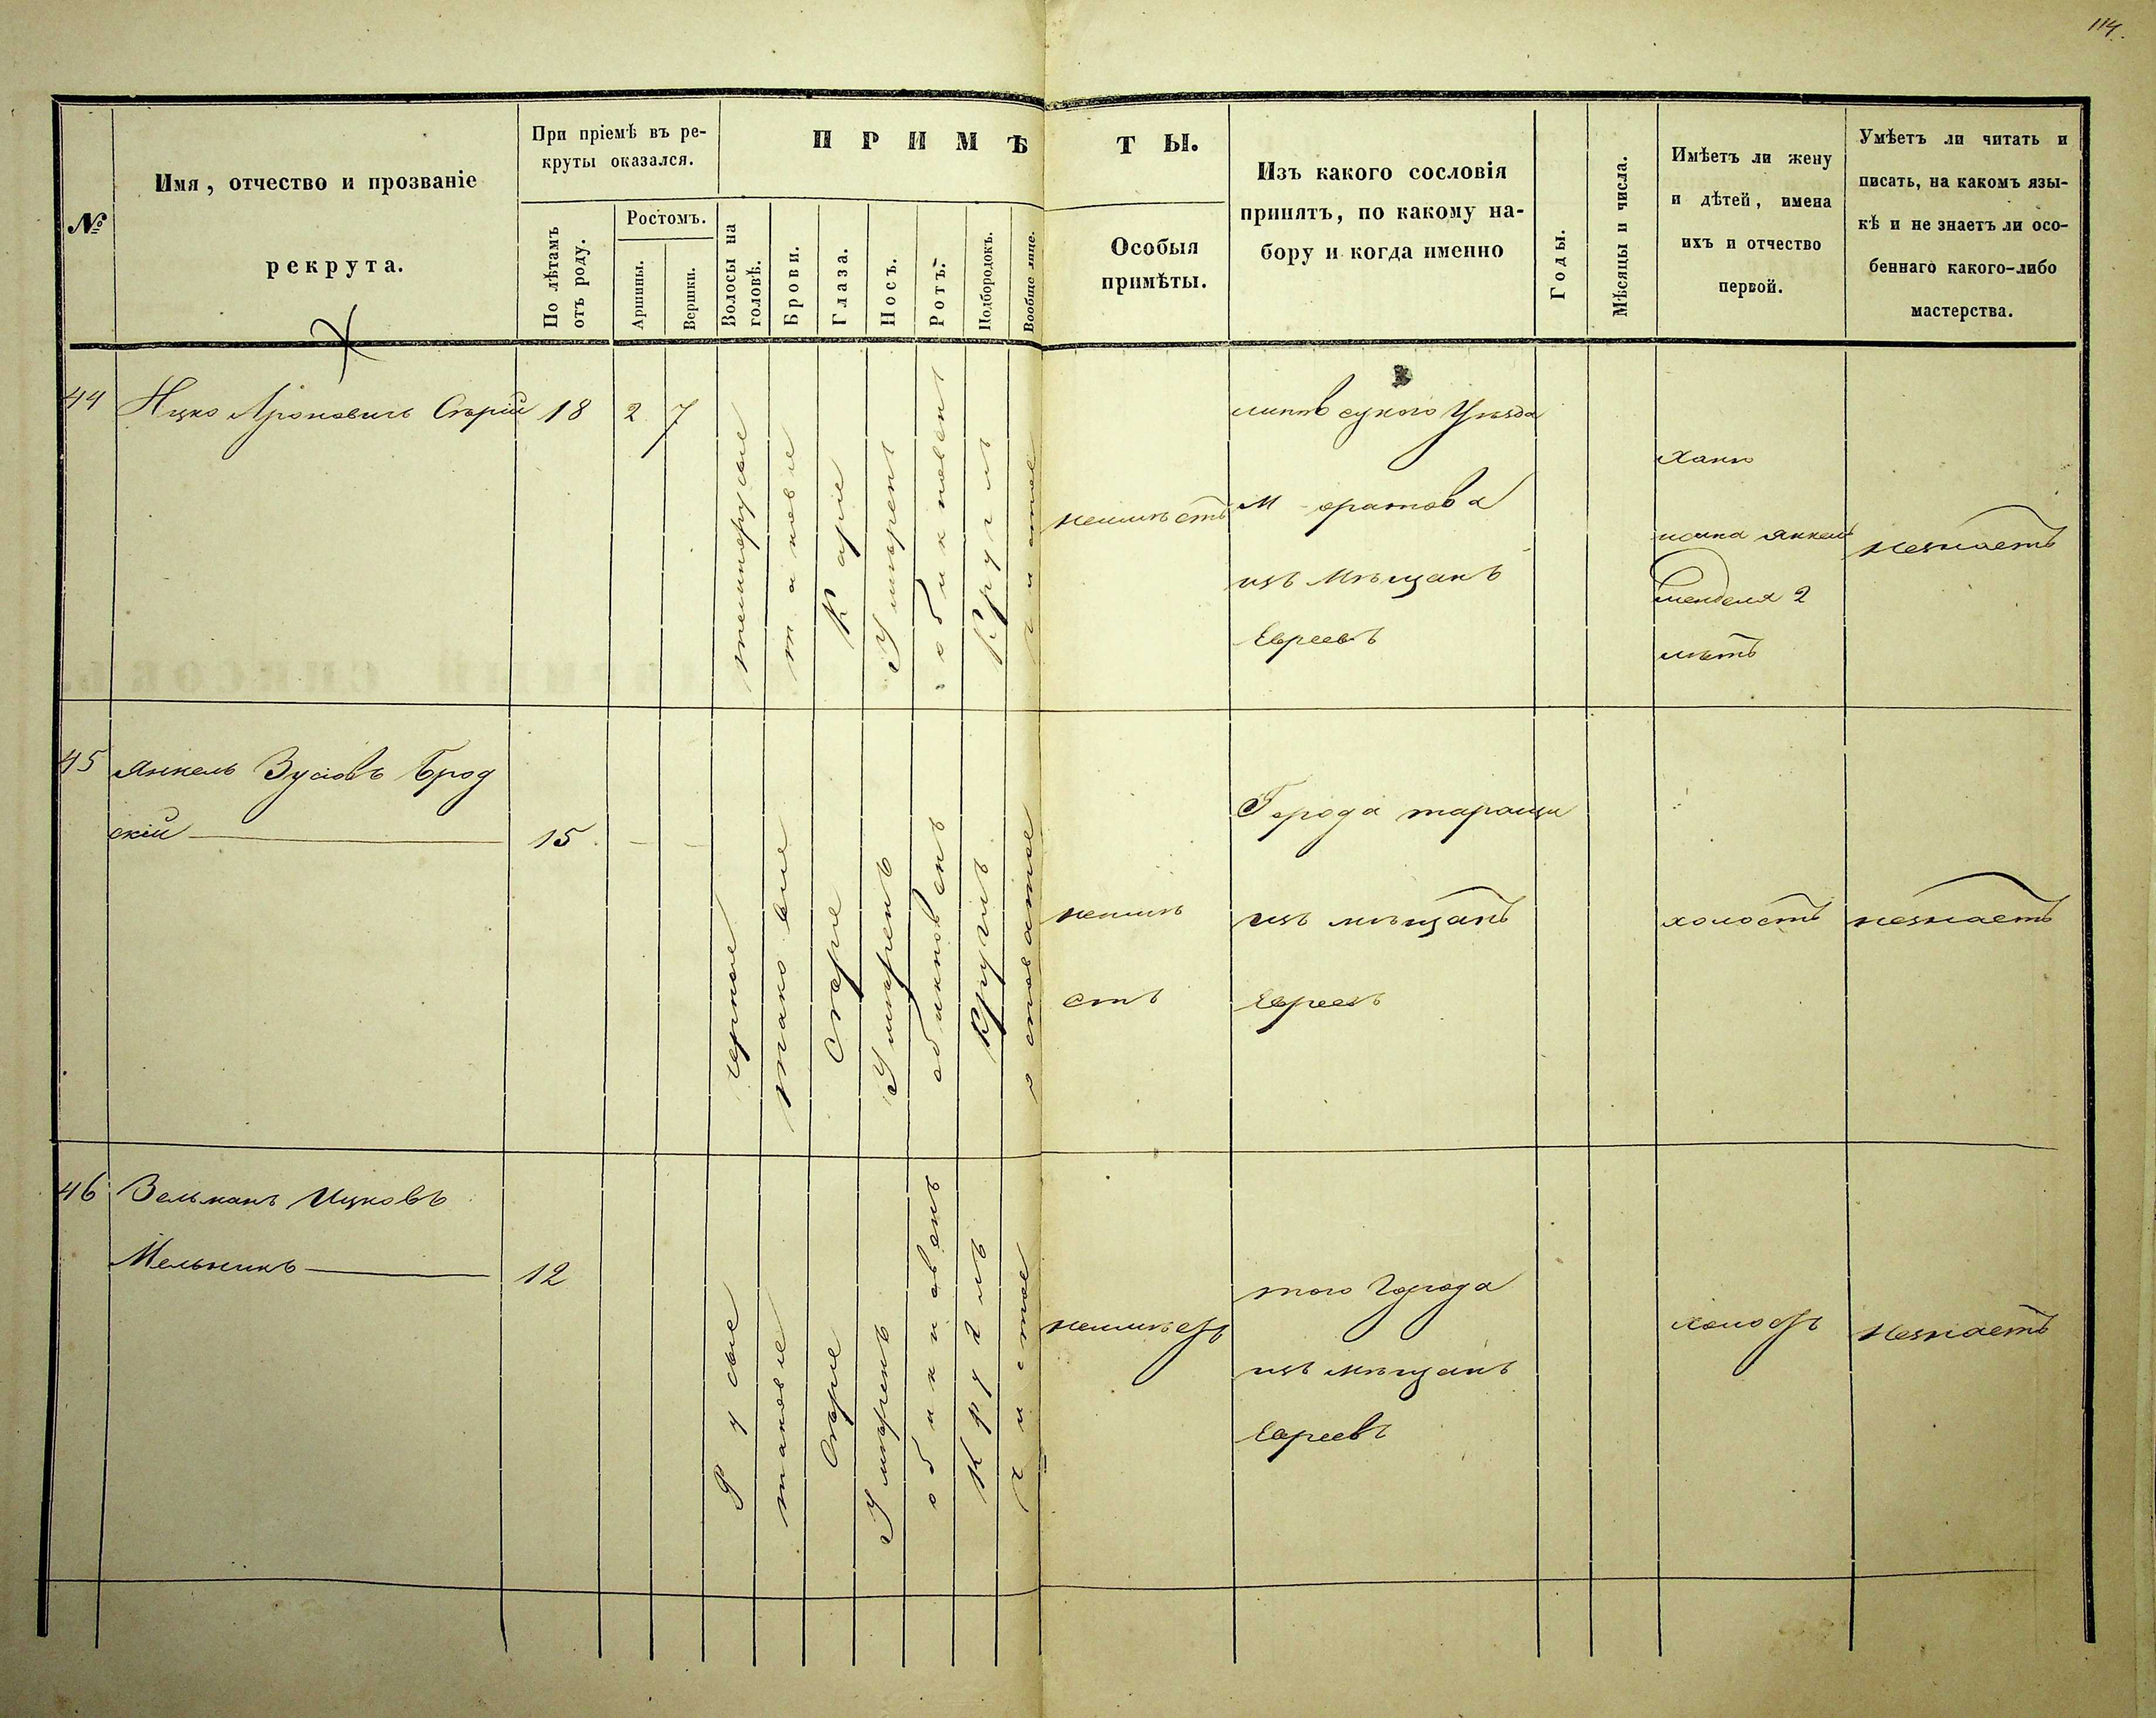 114.
№
Имя, отчество и прозваніе
рекрута.
При пріемѣ въ ре-
круты оказался.
По лѣтамъ
отъ роду.
Ростомъ.
Аршины.
Вершки.
ПРИМѢТЫ.
Волосы на
головѣ.
Брови.
Глаза.
Носъ.
Ротъ.
Подбородокъ.
Вообще лице.
Особыя
примѣты.
Изъ какого сословія
принятъ, по какому на-
бору и когда именно
Годы.
Мѣсяцы и числа.
Имѣетъ ли жену
и дѣтей, имена
ихъ и отчество
первой.
Умѣетъ ли читать и
писать, на какомъ язы-
кѣ и не знаетъ ли осо-
беннаго какого-либо
мастерства.
44
Ицко Ароновичъ Старій
18
2
7
темнорусые
таковіе
Каріе
Умѣренъ
обикновен
Круглъ
чистое
неимѣетъ
уѣзда
из Мѣщанъ
Евреевъ
Хана
янкель
менделя 2
лѣтъ
незнаетъ
45
Янкель Зусіовъ Брод
скій
15
черные
таковые
Старіе
Умѣренъ
обикновенъ
Круглъ
неимѣ
етъ
Города таращи
изъ мѣщанъ
Евреевъ
холостъ
незнаетъ
46
Зельманъ Ицковъ
Мельникъ
12
Русые
таковіе
Сѣрые
Умѣренъ
обикновенъ
Круглъ
чистое
неимѣетъ
того Города
изъ мѣщанъ
Евреевъ
холостъ
Незнаетъ